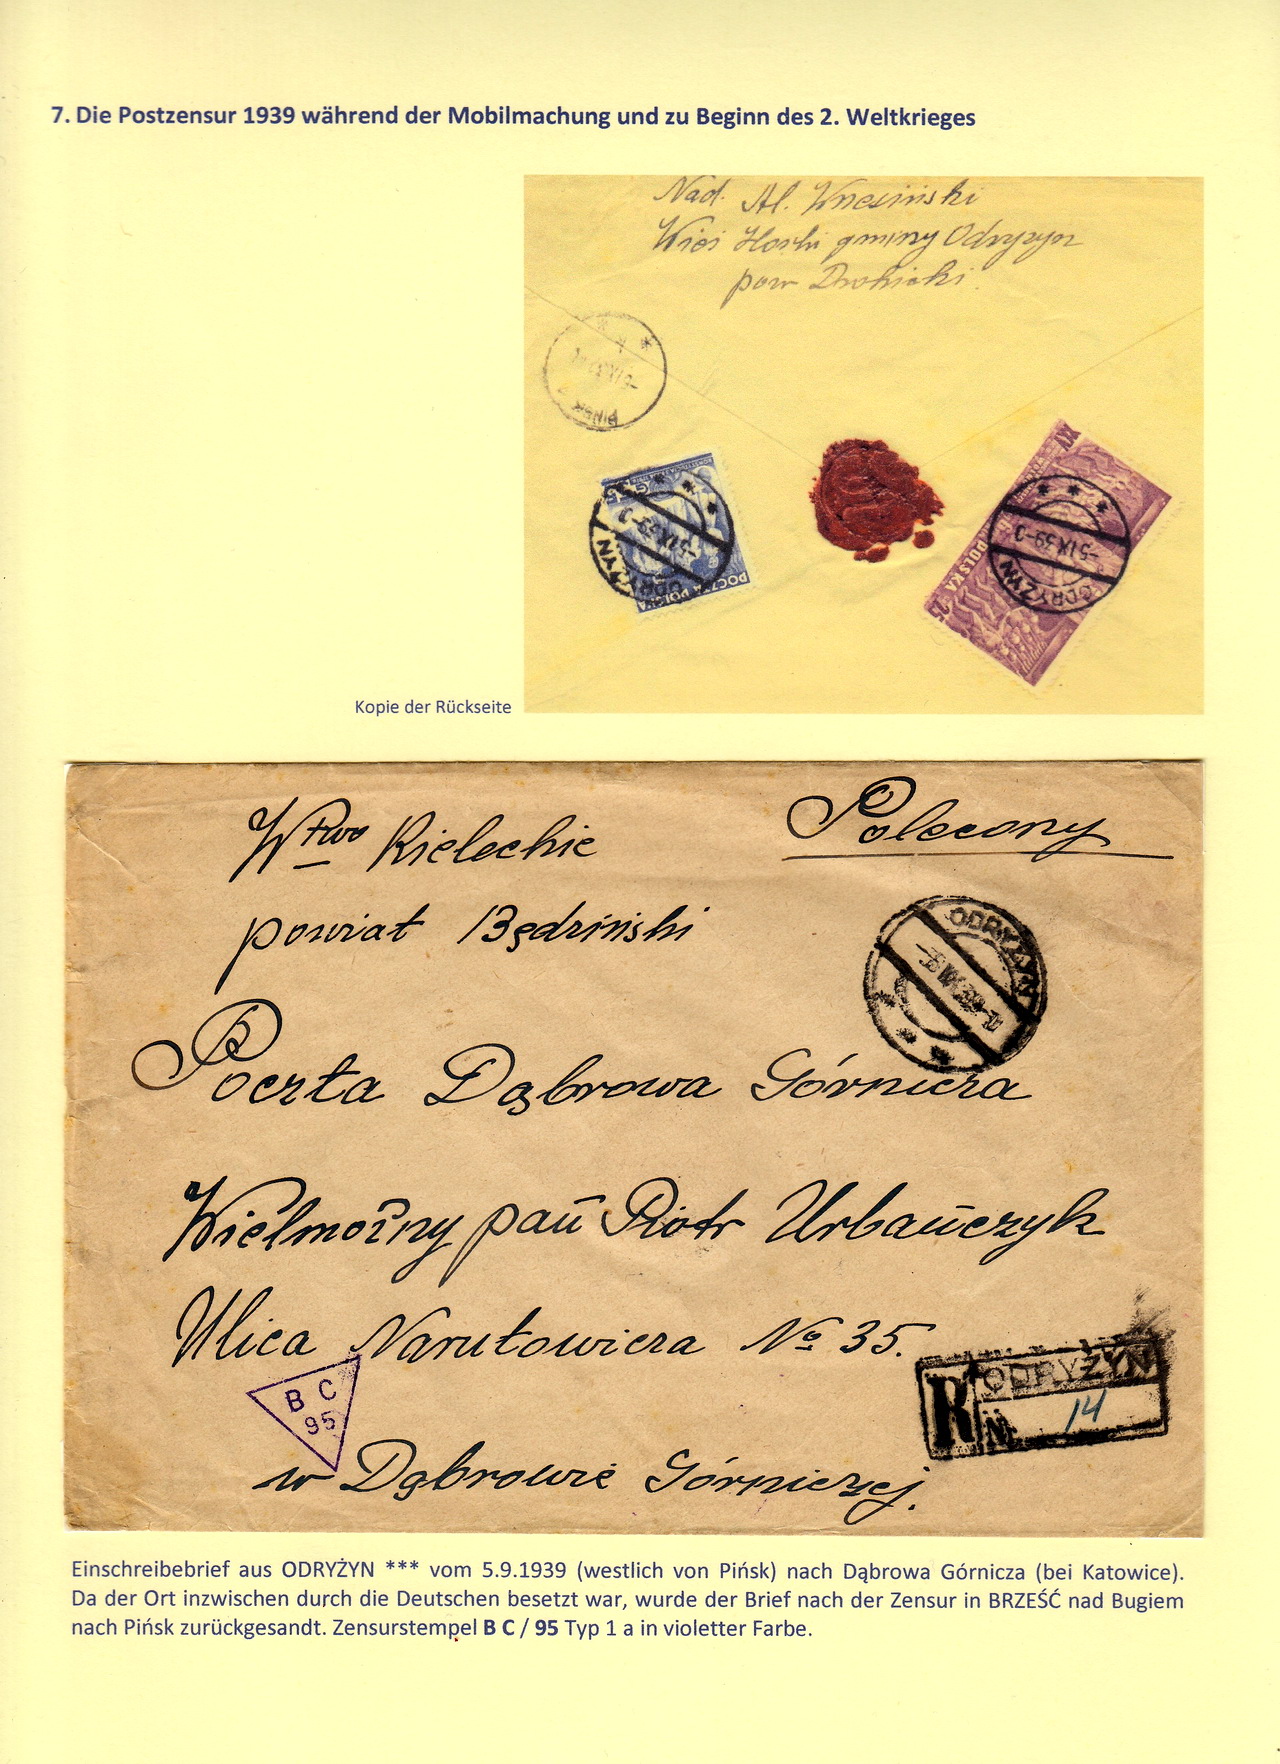 7. Die Postzensur 1939 während der Mobilmachung und zu Beginn des 2. Weltkrieges
Nad. Al.
Wieś gminy Odryżyn
pow Drohicki
PIŃSK
-5 IX 39
POCZTA POLSKA
ODRYŻYN
-5 IX 39-0
POLSKA
25
ODRYŻYN
-5 IX 39-0
Kopie der Rückseite
Wtwo Kieleckie
Polecony
powiat Będziński
ODRYŻYN
Poczta Dąbrowa Górnicza
Wielmożny pan Piotr Urbańczyk
Ulica Narutowicza No 35.
B C
95
R
ODRYŻYN
N 14
w Dąbrowie Górniczej.
Einschreibebrief aus ODRYŻYN *** vom 5.9.1939 (westlich von Pińsk) nach Dąbrowa Górnicza (bei Katowice).
Da der Ort inzwischen durch die Deutschen besetzt war, wurde der Brief nach der Zensur in BRZEŚĆ nad Bugiem
nach Pińsk zurückgesandt. Zensurstempel B C / 95 Typ 1 a in violetter Farbe.